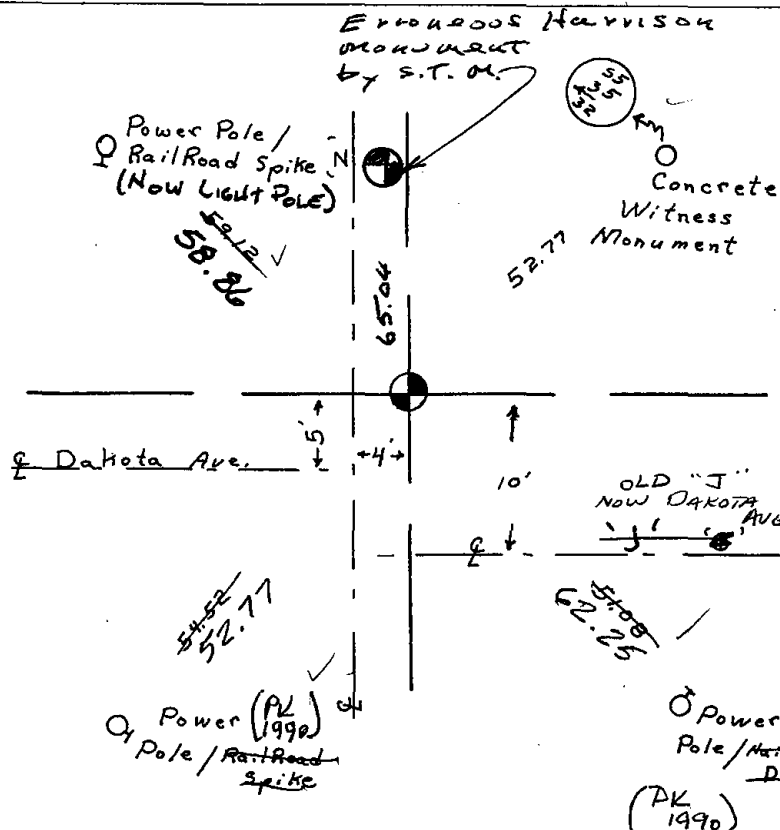 Erroneous Harrison
monument
by S.T.M.
Power Pole/
RailRoad Spike
(NOW LIGHT POLE)
N
Concrete
Witness
Monument
59.12
58.86
52.77
65.04
5'
4'
℄ Dakota Ave.
10'
OLD "J"
NOW DAKOTA
AVE
'J'
℄
54.52
52.77
51.08
62.25
℄
Power (PK
1990)
Pole/RailRoad
Spike
Power
Pole/
(PK
1990)